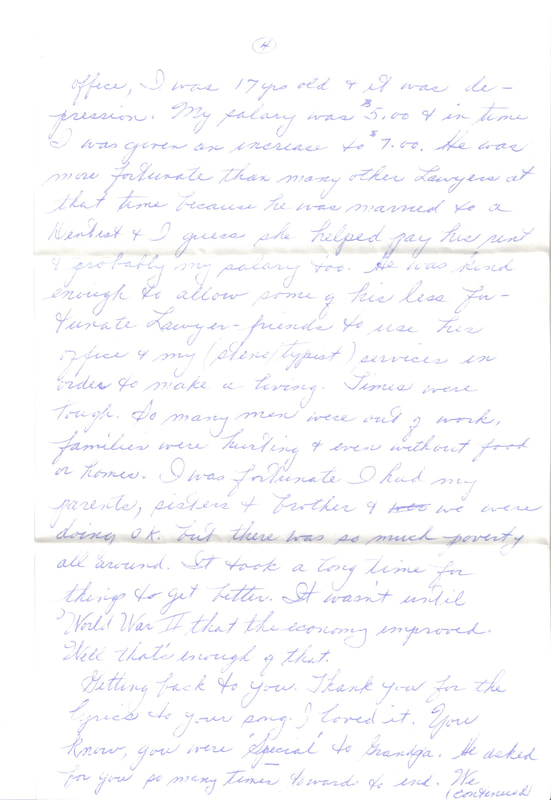 (4)
office, I was 17 yrs old & it was de-
pression. My salary was $5.00 & in time
I was given an increase to $7.00. He was
more fortunate than many other Lawyers at
that time because he was married to a
Dentist & I guess she helped pay his rent
& probably my salary too. He was kind
enough to allow some of his less for-
tunate Lawyer-friends to use his
office & my (steno/typist) services in
order to make a living. Times were
tough. So many men were out of work,
families were hurting & even without food
or homes. I was fortunate I had my
parents, sisters & brother & we were
doing O.K. but there was so much poverty
all around. It took a long time for
things to get better. It wasn't until
World War II that the economy improved.
Well that's enough of that.
Getting back to you. Thank you for the
lyrics to your song. I loved it. You
know, you were 'Special' to Grandpa. He asked
for you so many times toward to end. We
(continued